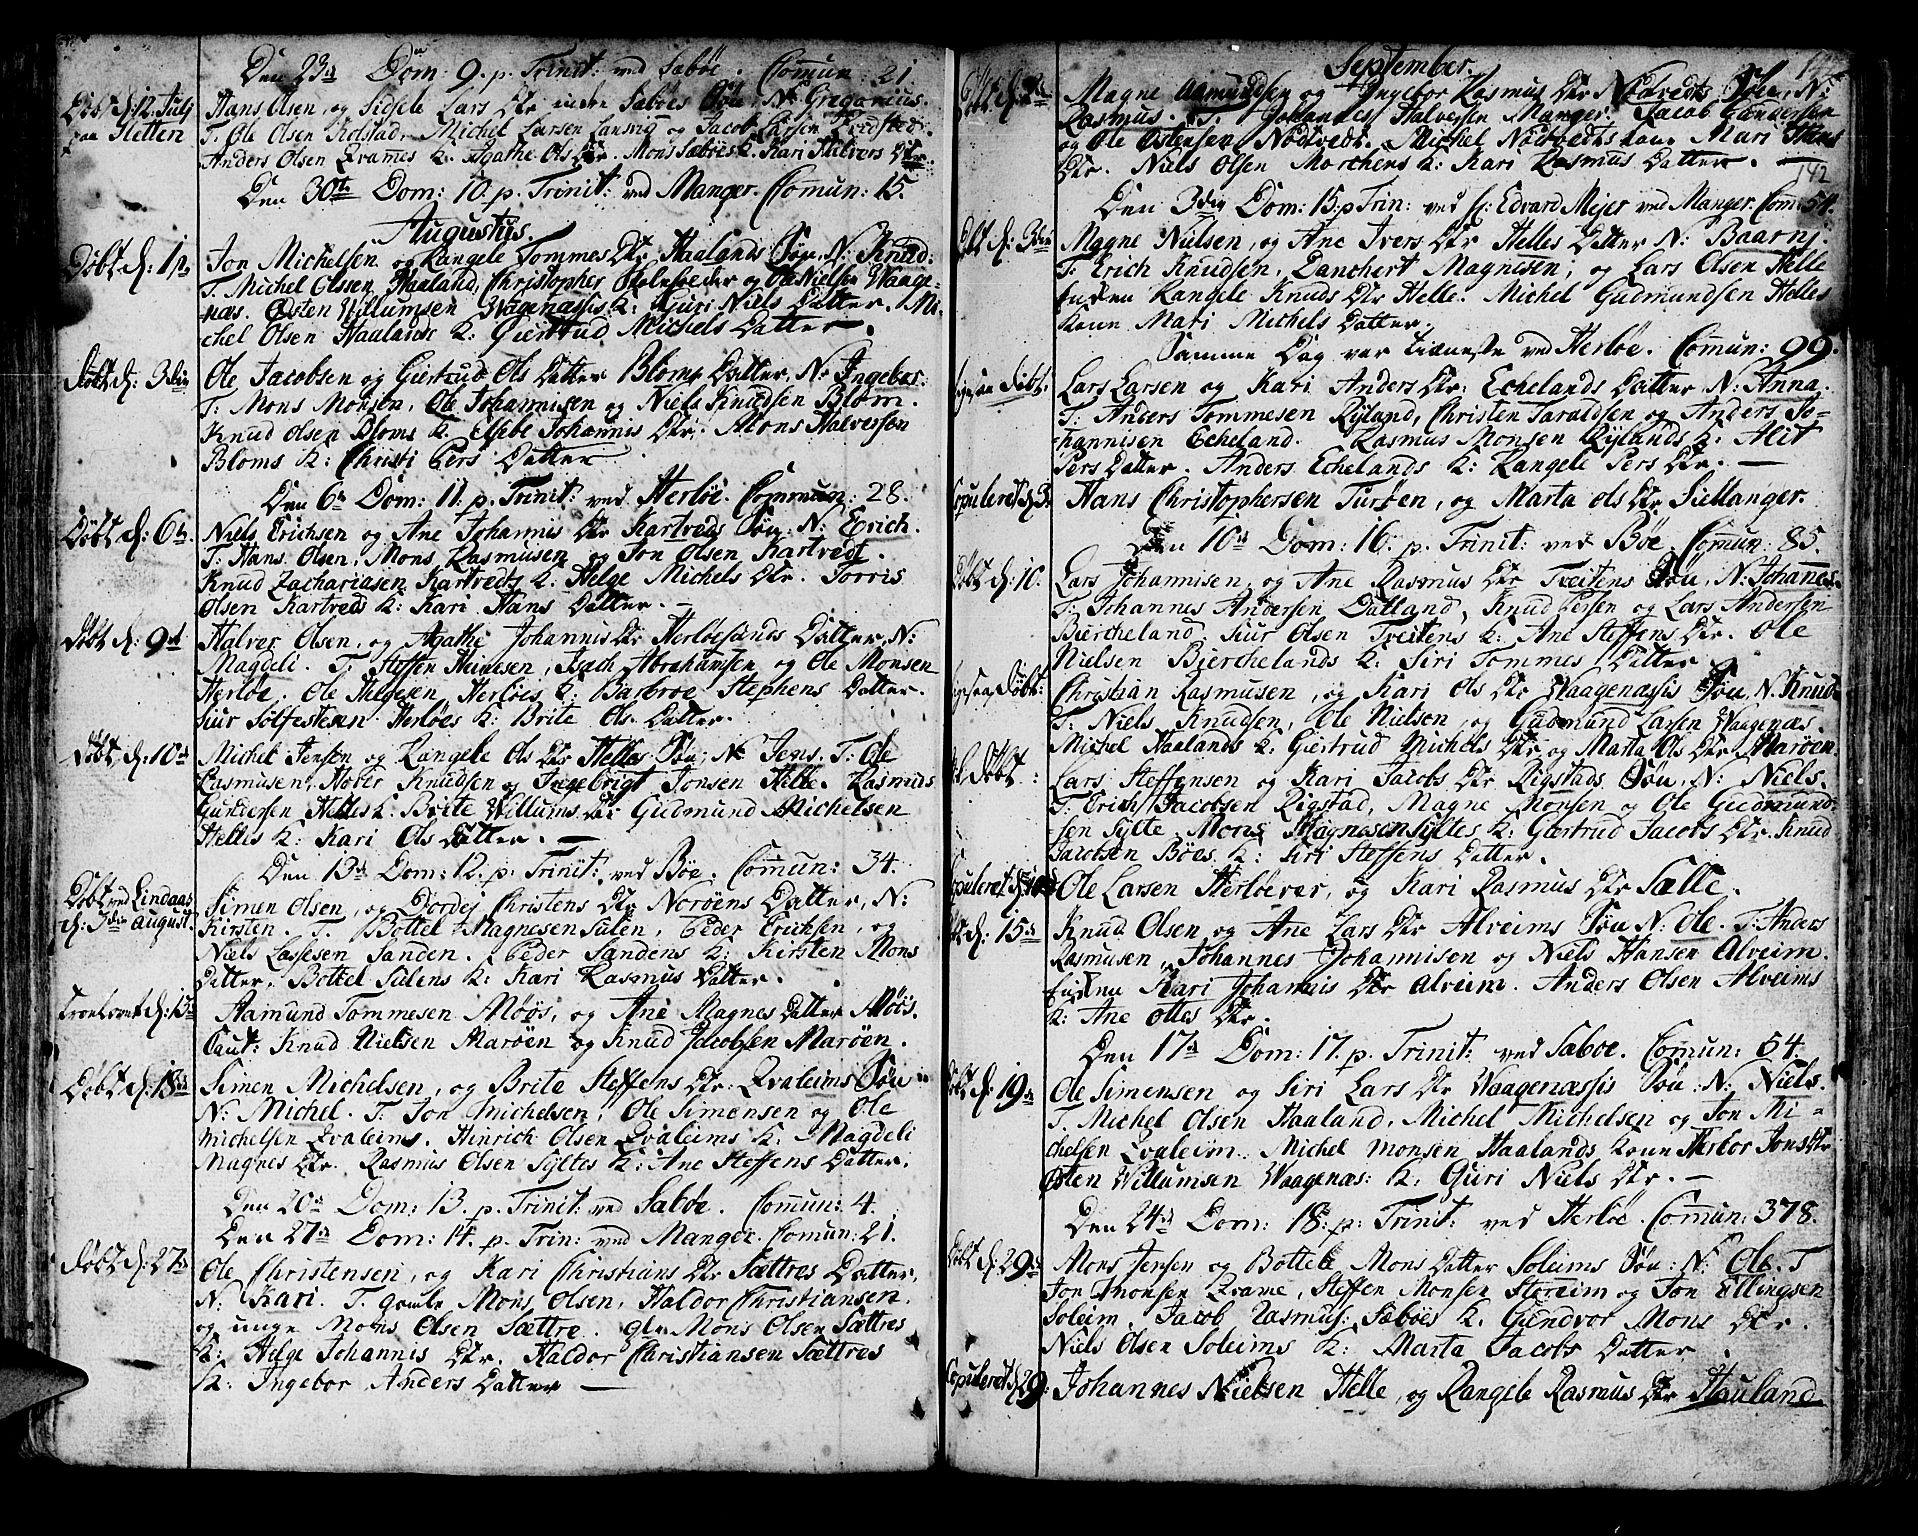 Den 23de Dom: 9. p. Trinit: ved Sæbøe. Com̅un: 21.
Døbt d: 12. July
paa Hetten
Hans Olsen, og Sidsele Lars Dtr indre Sæbøes Søn, N: Gregorius.
T. Ole Olsen Michel Larsen Landsvig og Jacob Larsen
Anders Olsen Qvames K: Agathe Ols Dtr. Mons Sæbøes K. Kari Halvers Dtr.
Den 30te Dom: 10. p. Trinit: ved Manger. Com̅un: 15.
Augustus.
Døbt d: 1ste
Jon Michelsen og Rangele Tommes Dtr Haalands Søn, N: Knud.
T. Michel Olssen Haaland, Christopher og Ole Nielsen Waage-
næs. Østen Willumsen Waagenæssis K: Guri Niels Datter. Mi-
chel Olsen Haalands K: Giertrud Michels Datter.
Døbt d: 3die
Ole Jacobsen og Giertrud Ols Datter Bloms Datter, N: Ingebor:
T: Mons Monsen, Ole Johannisen og Niels Knudsen Blom.
Knud Olsen Bloms K: Elsebe Johannis Dtr. Mons Halversen
Bloms K: Christi Pers Datter
Den 6te Dom: 11. p. Trinit: ved Herløe. Com̅un: 28.
Døbt d: 6te
Niels Erichsen og Ane Johannis Dtr Kartveds Søn: N: Erich.
T: Hans Olsen, Mons Rasmusen og Jon Olsen Kartvedt.
Knud Zachariasen Kartvedts K: Helge Michels Dtr. Torris
Olsen Kartveds K: Kari Hans Datter.
Døbt d: 9de
Halver Olsen, og Agathe Johannis Dtr Herløesunds Datter, N:
Magdeli. T. Steffen Isach Abrahamsen og Ole Monsen
Herløe. Ole Helgesen Herløes K: Barbroe Stephens Datter.
Siur Sølfestesen Herløes K: Brite Ols Datter.
Døbt d: 10de
Michel Jensen og Rangele Ols Dtr Helles Søn, N: Jens. T: Ole
Rasmusen, Knudsen og Ingebrigt Jonsen Helle. Rasmus
Gundersen Helles K: Brite Willums Dtr Gudmund Michelsen
Helles K: Kari Ols Datter.
Den 13de Dom: 12. p: Trinit: ved Bøe. Com̅un: 34.
Døbt ved Lindaas
d: 3die August.
Simen Olsen, og Dordej Christens Dtr Norøens Datter, N:
Kirsten. T. Bottel Magnesen Sulen, Peder Erichsen, og
Niels Lassesen Sanden. Peder Sandens K: Kirsten Mons
Datter. Bottel Sulens K: Kari Rasmus Datter.
Trolovet d: 13de
Aamund Tommesen Møøs, og Ane Magnes Datter Møøs.
Caut: Knud Nielsen Marøen og Knud Jacobsen Marøen.
Døbt d: 18de
Simen Michelsen, og Brite Steffens Dtr: Qvaleims Søn
N: Michel. T. Jon Michelsen, Ole Simensen og Ole
Michelsen Qvaleims. Hinrich Olsen Qvaleims K: Magdeli
Magnes Dtr. Rasmus Olsen Syltes K: Ane Steffens Datter.
Den 20de Dom: 13. p. Trinit: ved Sæbøe. Com̅un: 4.
Den 27de Dom: 14. p. Trin: ved Manger. Com̅un: 21.
Døbt d: 27de
Ole Christensen, og Kari Christians Dtr Sættres Datter,
N: Kari. T. gamle Mons Olsen, Haldor Christiansen,
og unge Mons Olsen Sættre. gl. Mons Olsen Sættres
K: Helge Johannis Dtr. Haldor Christiansen Sættres
K: Ingebor Anders Datter
September.
Magne Aamundsen og Ingebor Rasmus Dtr Nødtvedts Søn, N:
Rasmus. T. Johannes Halversen Manger, Jacob Gundersen
og Ole Østensen Nødtvedt. Michel Nødtvedts kone Mari
Dtr. Niels Olsen Morchens K: Kari Rasmus Datter.
142
Den 3die Dom: 15. p Trin: ved Hr: Edvard Mejer ved Manger. Com: 54.
Døbt d: 3die
Magne Nielsen, og Ane Ivers Dtr Helles Datter N: Baarni.
T. Erich Knudsen, Danchert Magnesen, og Lars Olsen Helle
Rangele Knuds Dtr Helle. Michel Gudmundsen Helles
kone Mari Michels Datter.
Samme Dag var tieneste ved Herløe. Com̅un: 99.
ligesaa døbt:
Lars Larsen og Kari Anders Dtr: Echelands Datter N: Anna.
T. Anders Tommesen Ryland, Christen Taraldsen og Anders Jo-
hannisen Echeland. Rasmus Monsen Rylands K: Alit
Pers Datter. Anders Echelands K: Rangele Pers Dtr.
Copuleret d: 3:
Hans Christophersen Turøen, og Marta Ols Dtr Siellanger.
Den 10de Dom: 16. p. Trinit: ved Bøe. Com̅un: 85.
Døbt d: 10.
Lars Johannisen, og Ane Rasmus Dtr Tveitens Søn, N: Johannes.
T: Johannes Andersen Dalland, Knud Persen og Lars Andersen
Biercheland. Siur Olsen Tveitens K: Ane Steffens Dtr. Ole
Nielsen Bierchelands K: Siri Tommes Datter.
ligesaa Døbt:
Christian Rasmusen, og Kari Ols Dtr Waagenæssis Søn, N. Knud.
T. Niels Knudsen, Ole Nielsen, og Gudmund Larsen Waagenæs.
Michel Haalands K: Giertrud Michels Dtr og Marta Ols Dtr Marøen.
Døbt:
Lars Steffensen og Kari Jacobs Dtr Rigstads Søn, N: Niels.
T. Erich Jacobsen Rigstad, Magne Monsen og Ole Gudmund-
sen Sylte. Mons Magnesen Syltes K: Giertrud Jacobs Dtr. Knud
Jacobsen Bøes K: Siri Steffens Datter.
Copuleret d: 10de
Ole Larsen Herløevær, og Kari Rasmus Dtr Sælle.
Døbt d: 15de
Knud Olsen og Ane Lars Dtr Alveims Søn N: Ole. T: Anders
Rasmusen, Johannes Johannisen og Niels Hansen Alveim.
Kari Johannis Dtr Alveim. Anders Olsen Alveims
K: Ane Ottes Dtr.
Den 17de Dom: 17. p. Trinit: ved Sæbøe. Com̅un: 54.
Døbt d: 19de
Ole Simensen og Siri Lars Dtr Waagenæssis Søn: N: Niels.
T. Michel Olsen Haaland, Michel Michelsen og Jon Mi-
chelsen Qvaleim. Michel Monsen Haalands kone Herbor Jons Dtr
Østen Willumsen Waagenæs: K: Guri Niels Dtr.
Den 24de Dom: 18. p: Trinit: ved Herløe. Com̅un: 378.
Døbt d: 29de
Mons Jensen og Bottele Mons Datter Soleims Søn: N: Ole. T
Jon Monsen Qvame, Steffen Monsen Storeim og Jon Ellingsen
Soleim. Jacob Rasmus: Sæbøes K. Gundvor Mons Dtr.
Niels Olsen Soleims K: Marta Jacobs Datter
Copuleret d: 29:
Johannes Nielsen Helle, og Rangele Rasmus Dtr Hauland